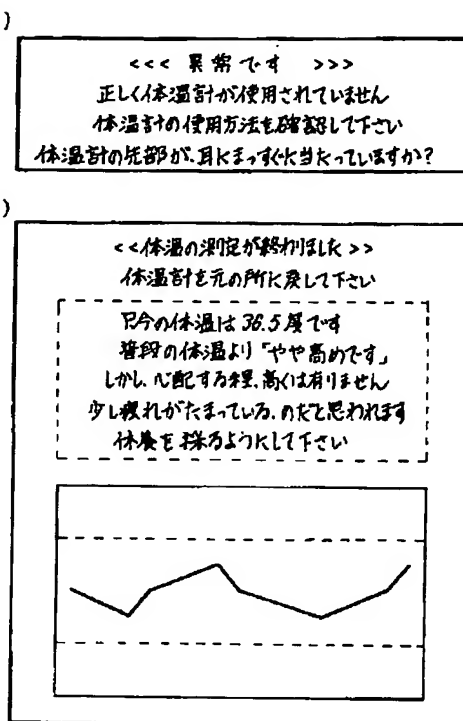 )
<<< 異常です >>>
正しく体温計が使用されていません
体温計の使用方法を確認して下さい
体温計の先部が、耳にまっすぐに当たっていますか?
)
<<体温の測定が終わりました>>
体温計を元の所に戻して下さい
只今の体温は36.5度です
普段の体温より「やや高めです」
しかし、心配する程、高くは有りません
少し疲れがたまっている、のだと思われます
休養を採るようにして下さい